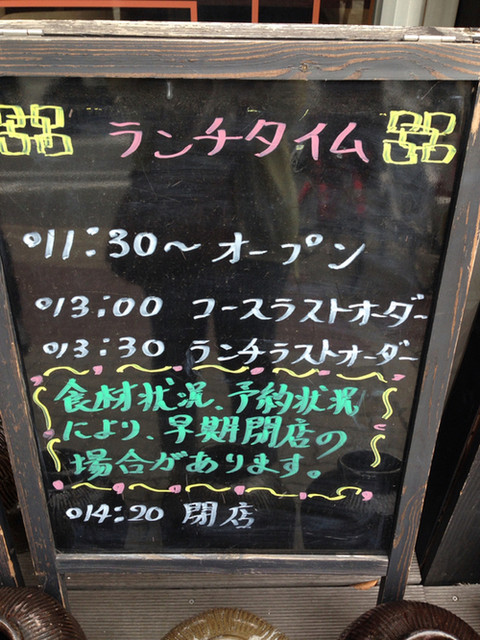 ランチタイム
○11:30〜オープン
○13:00 コースラストオーダー
○13:30 ランチラストオーダー
食材状況、予約状況
により、早期閉店の
場合があります。
○14:20 閉店